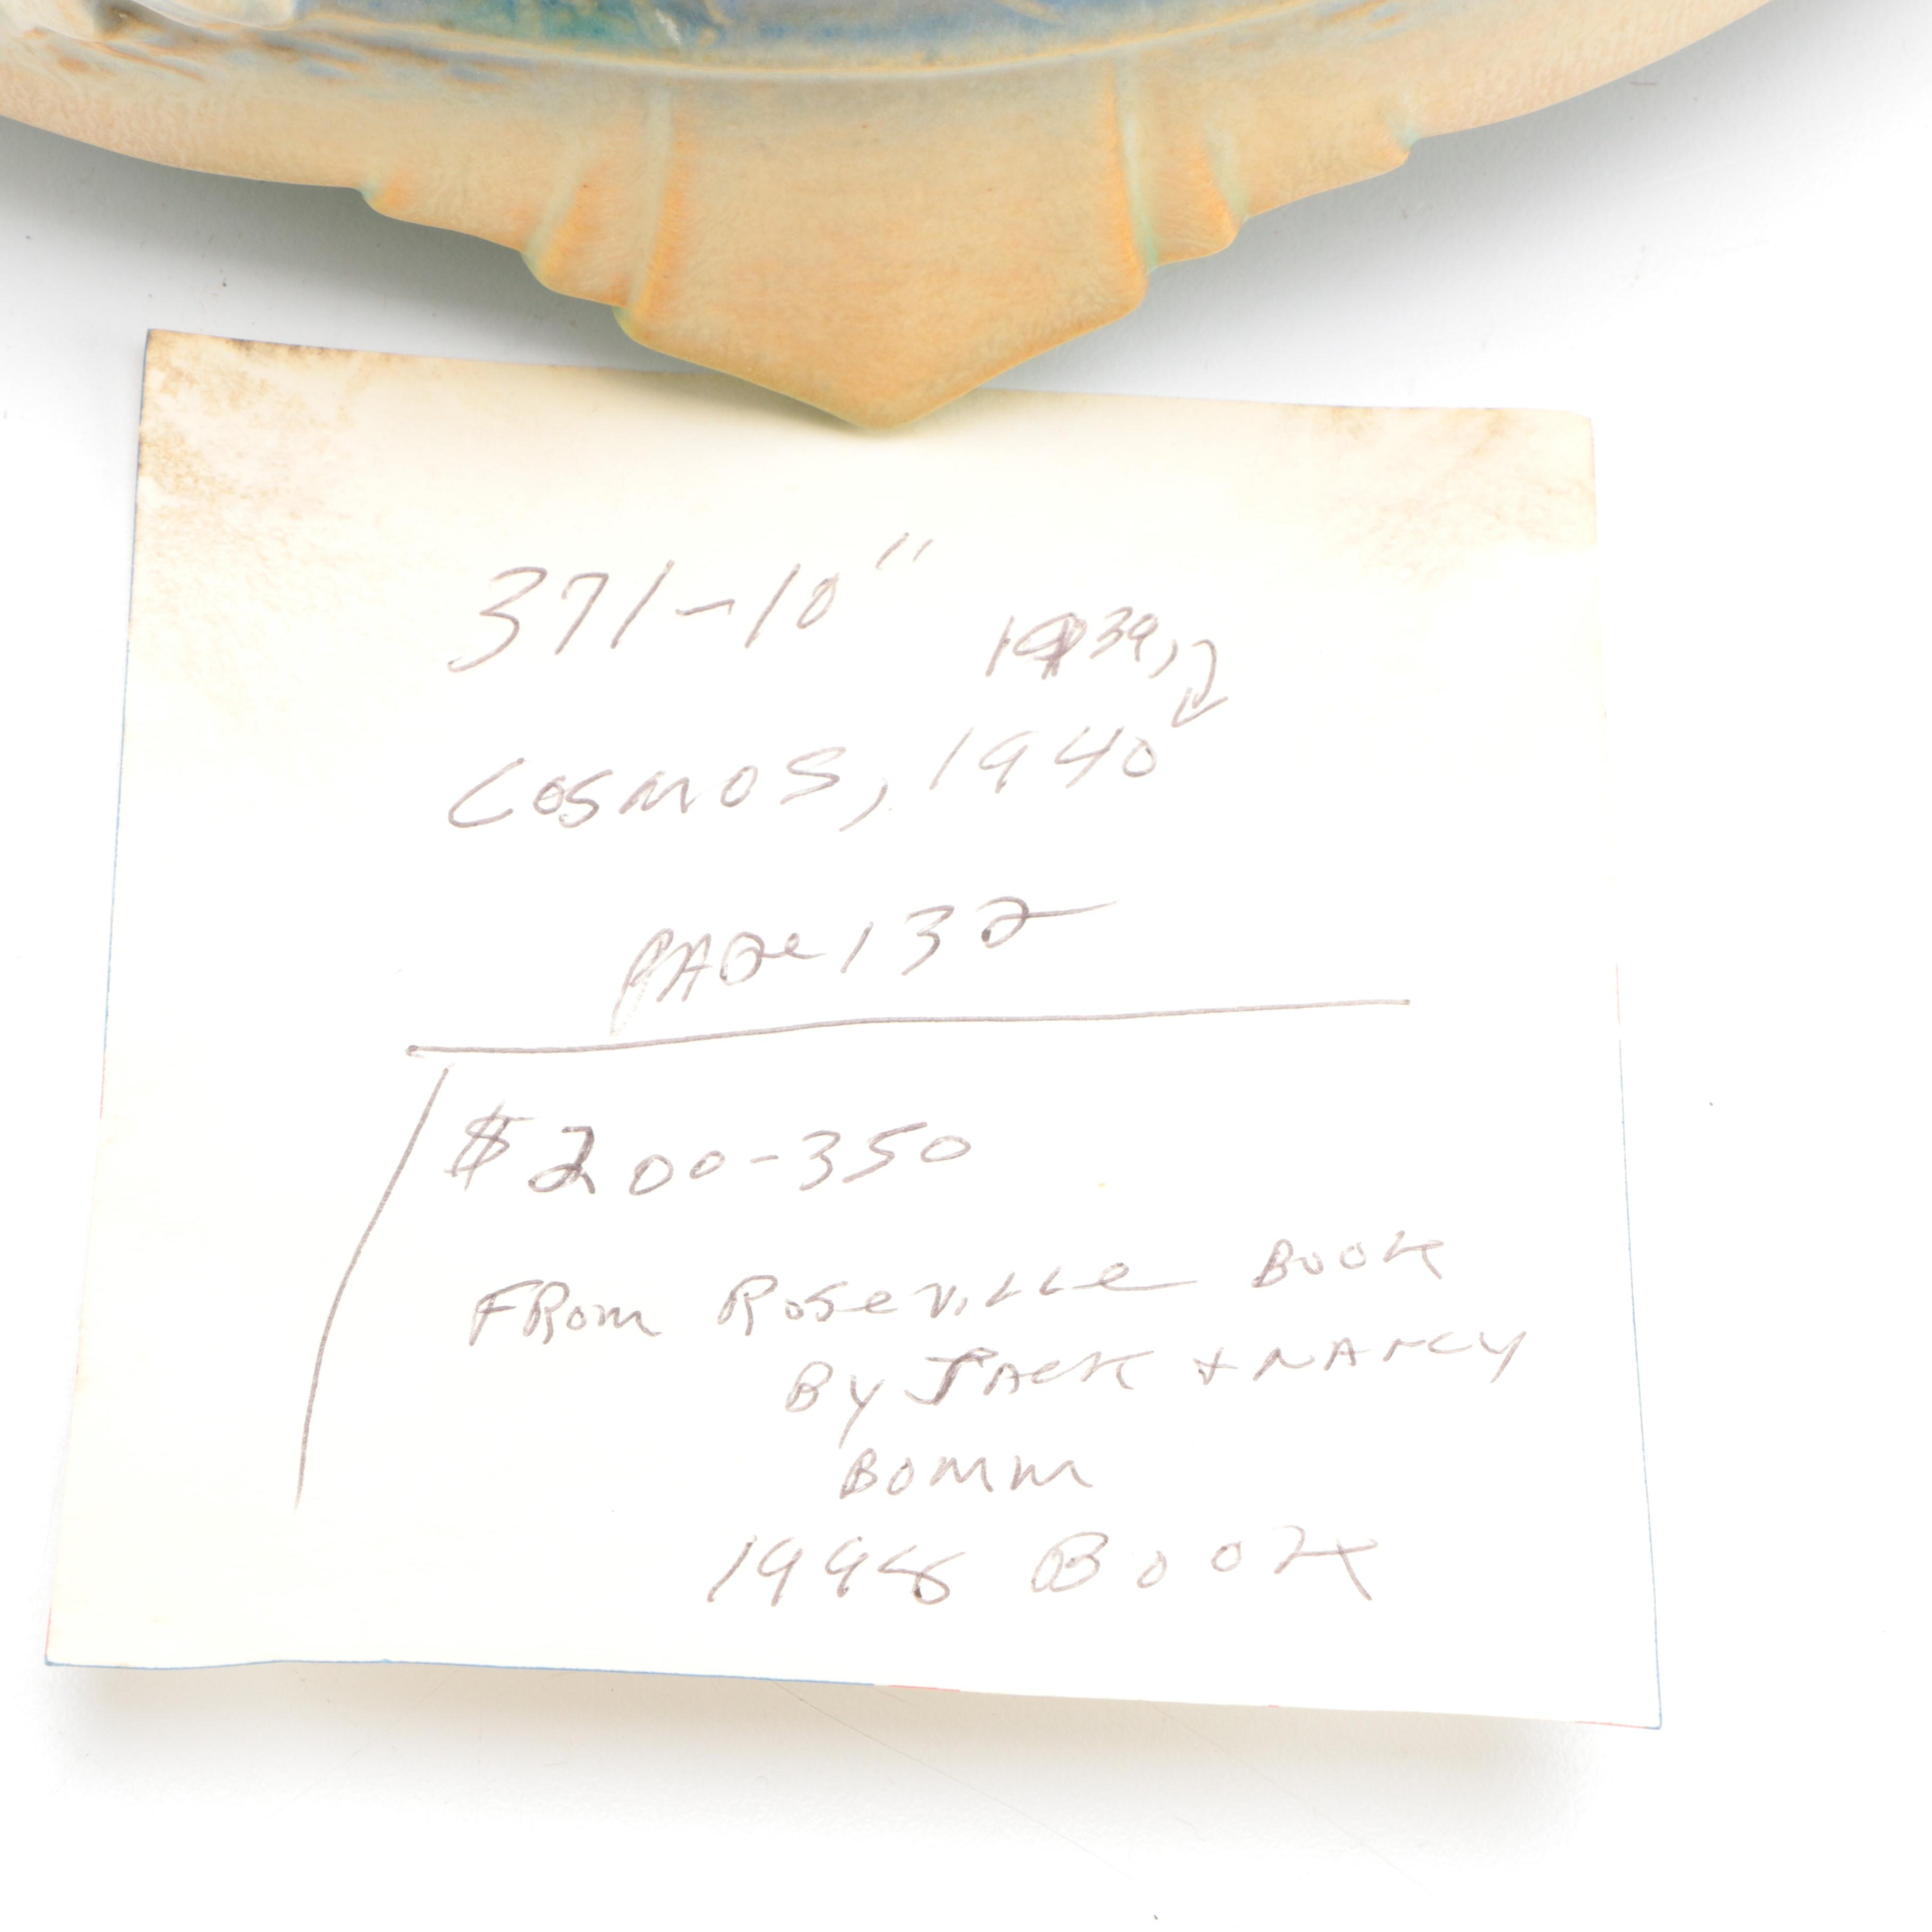 371-10"
1939,
Cosmos, 1940
PAGe 132
$200-350
FROM ROSeVILLe BOOK
By JACK + NANCY
BOMM
1998 BOOK